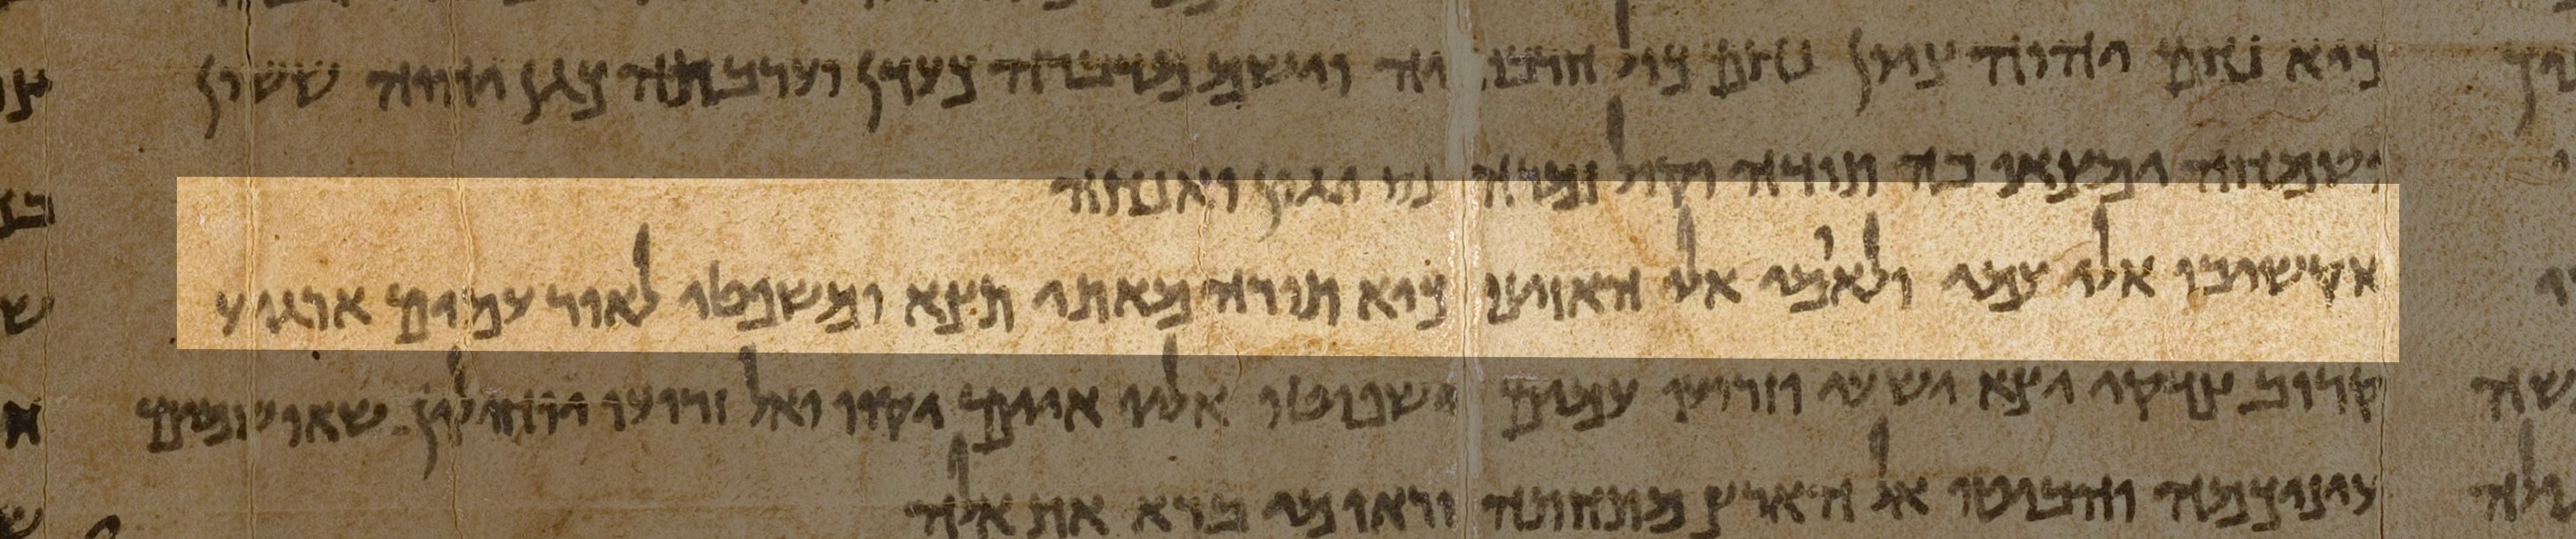 כיא נחם יהוה ציון נחם כול חרבותיה וישם מדברה כעדן וערבתה כגן יהוה ששון
ושמחה ימצאו בה תודה וקול זמרה נס יגון ואנחה
אקשיבו אלי עמי ולאומי אלי האזינו כיא תורה מאתי תצא ומשפטי לאור עמים ארגיע
קרוב צדקי יצא ישעי וזרועו עמים ישפוטו אליו איים יקוו ואל זרועו יוחילון שאו שמים
עיניכמה והביטו אל הארץ מתחתה וראו מי ברא את אלה